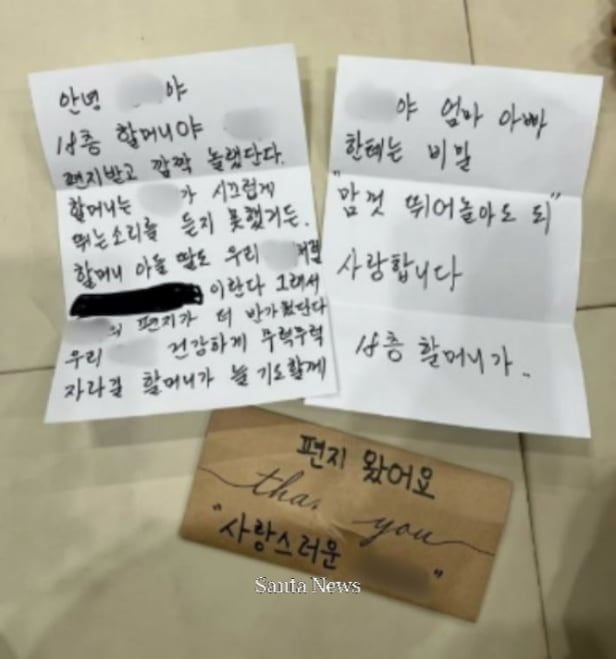 안녕 야
18층 할머니야
편지받고 깜짝 놀랬단다.
할머니는 가 시끄럽게
뛰는소리를 듣지 못했거든.
할머니 아들 딸도 우리 처럼
이란다 그래서
의 편지가 더 반가웠단다
우리 건강하게 무럭무럭
자라길 할머니가 늘 기도할께
야 엄마 아빠
한테는 비밀
"맘껏 뛰어놀아도 되"
사랑합니다
18층 할머니가.
편지 왔어요
thank you
"사랑스러운 "
Santa News